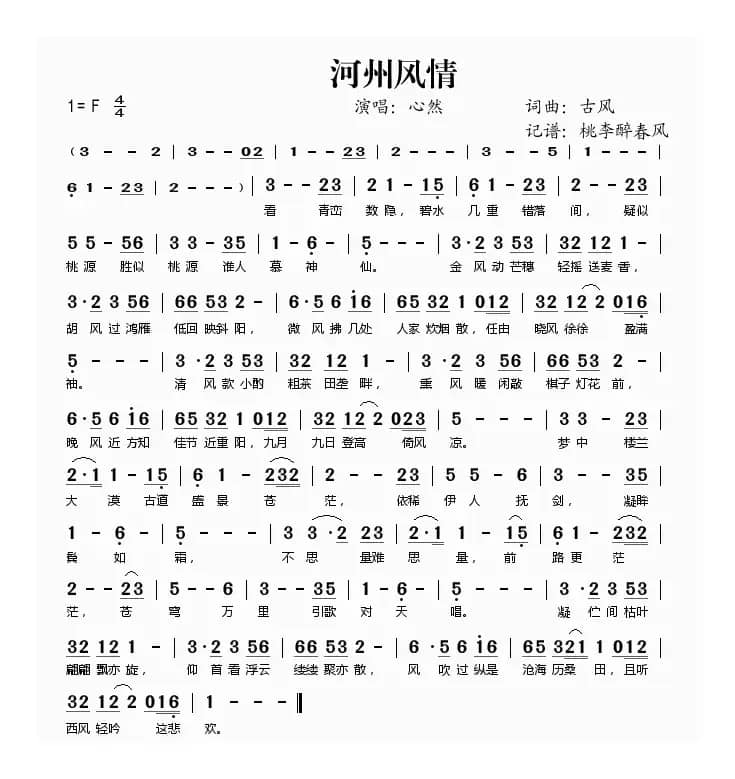 河州风情
1= F 4/4 演唱：心然 词曲：古风
记谱：桃李醉春风
( 3 - - 2 | 3 - - 02 | 1 - - 23 | 2 - - - | 3 - - 5 | 1 - - - |
6 1 - 23 | 2 - - - ) | 3 - - 23 | 2 1 - 15 | 6 1 - 23 | 2 - - 23 |
看 青峦 数隐，碧水 几重 错落 间，疑似
5 5 - 56 | 3 3 - 35 | 1 - 6 - | 5 - - - | 3·2 3 53 | 32 12 1 - |
桃源 胜似 桃源 谁人 慕 神 仙。 金 风动芒穗 轻摇送麦香，
3·2 3 56 | 66 53 2 - | 6·5 6 16 | 65 32 1 012 | 32 12 2 016 |
胡 风过鸿雁 低回映斜阳， 微 风拂几处 人家炊烟散，任由 晓风徐徐 盈满
5 - - - | 3·2 3 53 | 32 12 1 - | 3·2 3 56 | 66 53 2 - |
袖。 清 风款小酌 粗茶田垄畔， 熏 风暖闲敲 棋子灯花前，
6·5 6 16 | 65 32 1 012 | 32 12 2 023 | 5 - - - | 3 3 - 23 |
晚 风近方知 佳节近重阳，九月 九日登高 倚风 凉。 梦中 楼兰
2·1 1 - 15 | 6 1 - 232 | 2 - - 23 | 5 5 - 6 | 3 - - 35 |
大 漠 古道 盛景 苍 茫， 依稀 伊人 抚 剑， 凝眸
1 - 6 - | 5 - - - | 3 3·2 23 | 2·1 1 - 15 | 6 1 - 232 |
鬓 如 霜， 不思 量难 思 量，前 路更 茫
2 - - 23 | 5 - - 6 | 3 - - 35 | 1 - 6 - | 5 - - - | 3·2 3 53 |
茫，苍 穹 万 里 引歌 对 天 唱。 凝 伫间枯叶
32 12 1 - | 3·2 3 56 | 66 53 2 - | 6·5 6 16 | 65 321 1 012 |
翩翩飘亦旋， 仰 首看浮云 缕缕聚亦散， 风 吹过纵是 沧海历桑 田，且听
32 12 2 016 | 1 - - - ‖
西风轻吟 这悲 欢。